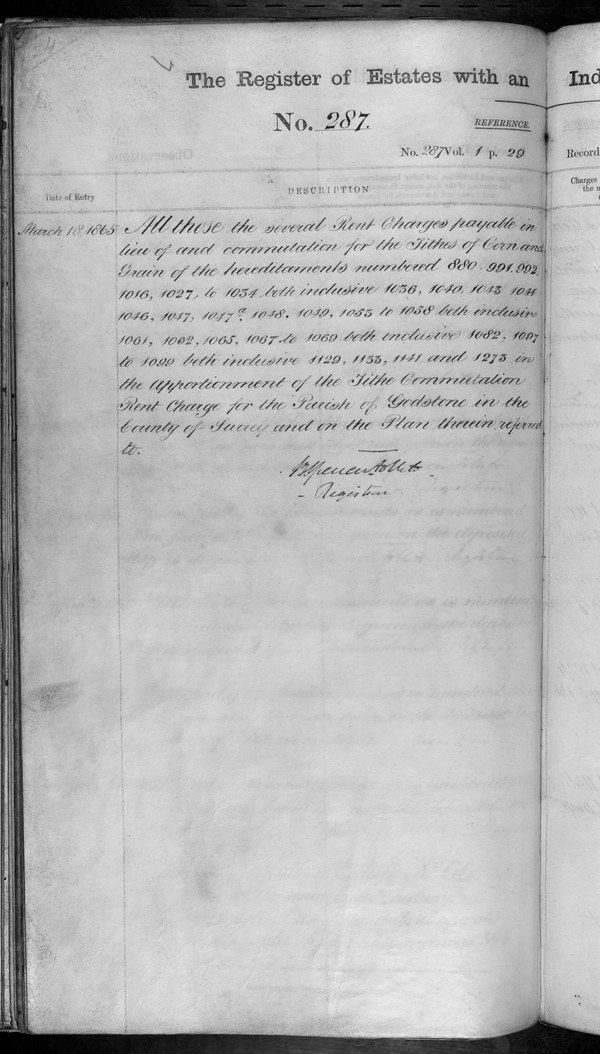 The Register of Estates with an
No. 287.
REFERENCE.
No. 287 Vol. 1 p. 29
Date of Entry
DESCRIPTION
March 18, 1865
All those the several Rent Charges payable in
lieu of and commutation for the Tithes of Corn and
Grain of the hereditaments numbered 880. 991. 992.
1016, 1027, to 1034 both inclusive 1036, 1040. 1043 1044
1046, 1047, 1047a. 1048. 1049, 1053 to 1058 both inclusive
1061, 1062, 1065, 1067 to 1069 both inclusive 1082, 1097
to 1099 both inclusive 1129, 1133, 1141 and 1273 in
the apportionment of the Tithe Commutation
Rent Charge for the Parish of Godstone in the
County of Surrey and on the Plan therein referred
to.
Registrar
Ind
Record
Charges
the